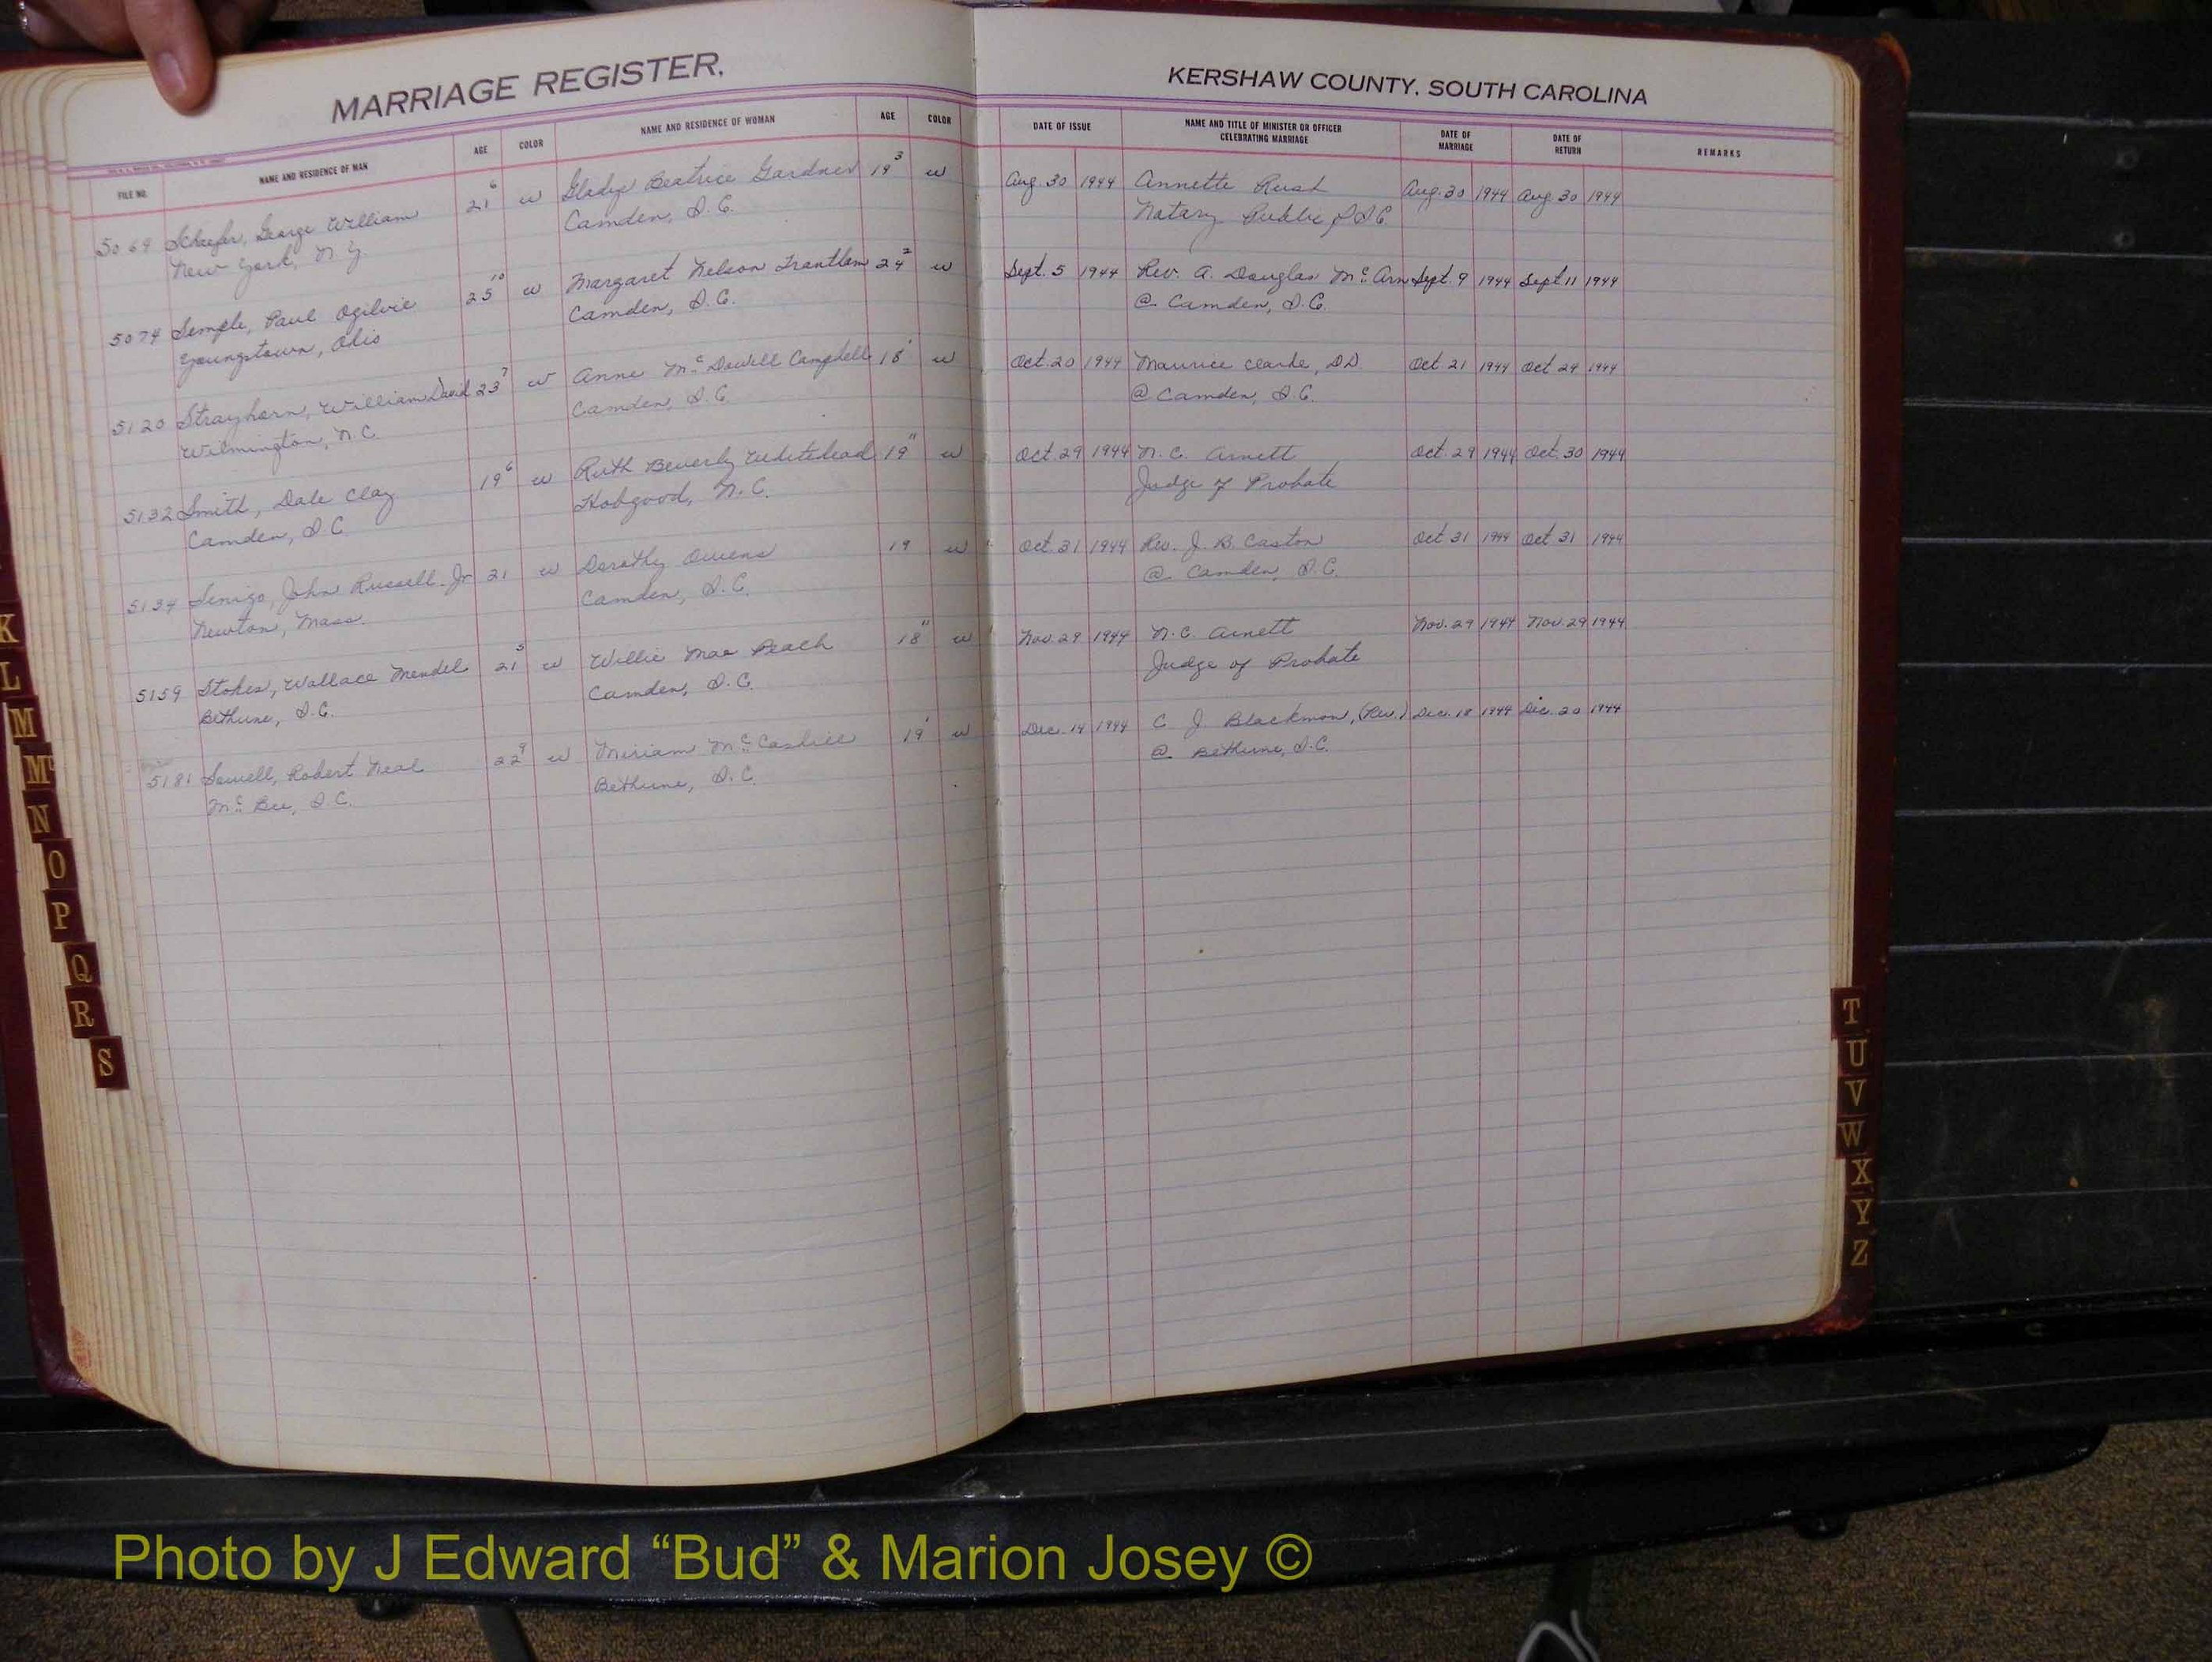 MARRIAGE REGISTER,
FILE NO. NAME AND RESIDENCE OF MAN AGE COLOR NAME AND RESIDENCE OF WOMAN AGE COLOR
5069 Schaefer, George William 21 6 w Gladys Beatrice Gardner 19 3 w
New York, N.Y. Camden, S.C.
5074 Semple, Paul Ogilvie 25 10 w Margaret Nelson Trantham 24 2 w
Youngstown, Ohio Camden, S.C.
5120 Strayhorn, William David 23 7 w Anne Mc Dowell Campbell 18 1 w
Wilmington, N.C. Camden, S.C.
5132 Smith, Dale Clay 19 6 w Ruth Beverly Whitehead 19 11 w
Camden, S.C. Hobgood, N.C.
5134 John Russell Jr 21 w Dorothy Owens 19 w
Newton, Mass. Camden, S.C.
5159 Stokes, Wallace Mendel 21 5 w Willie Mae Peach 18 11 w
Bethune, S.C. Camden, S.C.
5181 Sowell, Robert Neal 22 9 w Miriam Mc Caskill 19 1 w
Mc Bee, S.C. Bethune, S.C.
KERSHAW COUNTY, SOUTH CAROLINA
DATE OF ISSUE NAME AND TITLE OF MINISTER OR OFFICER CELEBRATING MARRIAGE DATE OF MARRIAGE DATE OF RETURN REMARKS
Aug. 30 1944 Annette Rush Aug. 30 1944 Aug 30 1944
Notary Public, S.C.
Sept. 5 1944 Rev. A. Douglas Mc Arn Sept. 9 1944 Sept 11 1944
@ Camden, S.C.
Oct. 20 1944 Maurice Clarke, DD Oct. 21 1944 Oct 24 1944
@ Camden, S.C.
Oct. 29 1944 N.C. Arnett Oct. 29 1944 Oct. 30 1944
Judge of Probate
Oct. 31 1944 Rev. J. B. Caston Oct 31 1944 Oct 31 1944
@ Camden, S.C.
Nov. 29 1944 N.C. Arnett Nov. 29 1944 Nov. 29 1944
Judge of Probate
Dec. 14 1944 C J. Blackmon, (Rev.) Dec. 18 1944 Dec. 20 1944
@ Bethune, S.C.
K
L
M
Mc
N
O
P
Q
R
S
T
U
V
W
X
Y
Z
Photo by J Edward “Bud” & Marion Josey ©